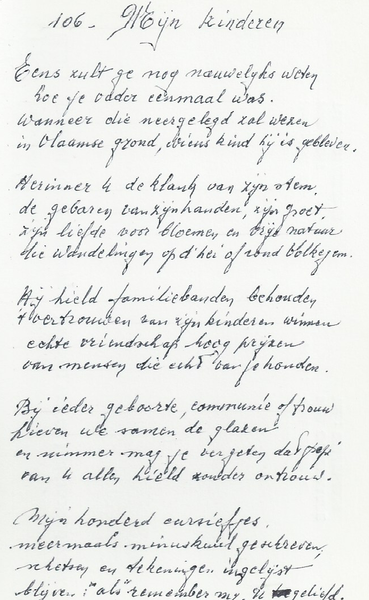 106. Mijn kinderen
Eens zult ge nog nauwelyks weten
hoe je vader eenmaal was.
wanneer die neergelegd zal wezen
in Vlaamse grond, wiens kind hij is gebleven.
Herinner U de klank van zijn stem,
de gebaren van zijn handen, zijn groet,
zijn liefde voor bloemen en vrije natuur
die wandelingen op d'hei of rond
Hij hield familiebanden behouden
't vertrouwen van zijn kinderen winnen
echte vriendschap hoog prijzen
van mensen die echt van je houden.
Bij ieder geboorte, communie of trouw
hieven we samen de glazen
en nimmer mag je vergeten dat
van U allen hield zonder ontrouw.
Mijn honderd cursiefjes,
meermaals minuskuul geschreven,
schetsen en tekeningen ingelijst
blijven: "als" remember my. Uw geliefd.